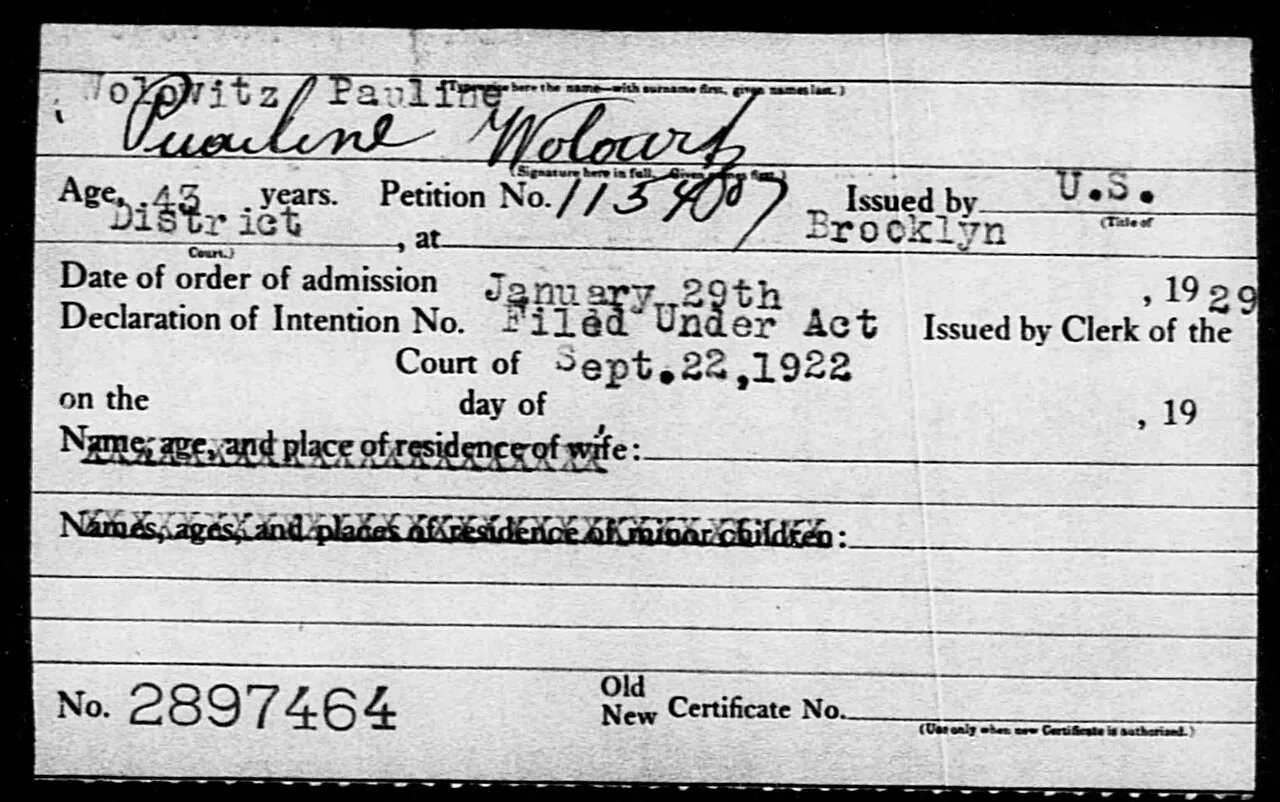 Wolowitz Pauline
(Typewrite here the name—with surname first, given names last.)
Puauline Wolowitz
(Signature here in full. Given names first.)
Age, 43 years. Petition No. 115407 Issued by U.S.
(Title of
District , at Brooklyn
Court.)
Date of order of admission January 29th , 1929
Declaration of Intention No. Filed Under Act Issued by Clerk of the
Court of Sept.22,1922
on the day of , 19
Name, age, and place of residence of wife:
Names, ages, and places of residence of minor children:
No. 2897464
Old
New Certificate No.
(Use only when new Certificate is authorized.)